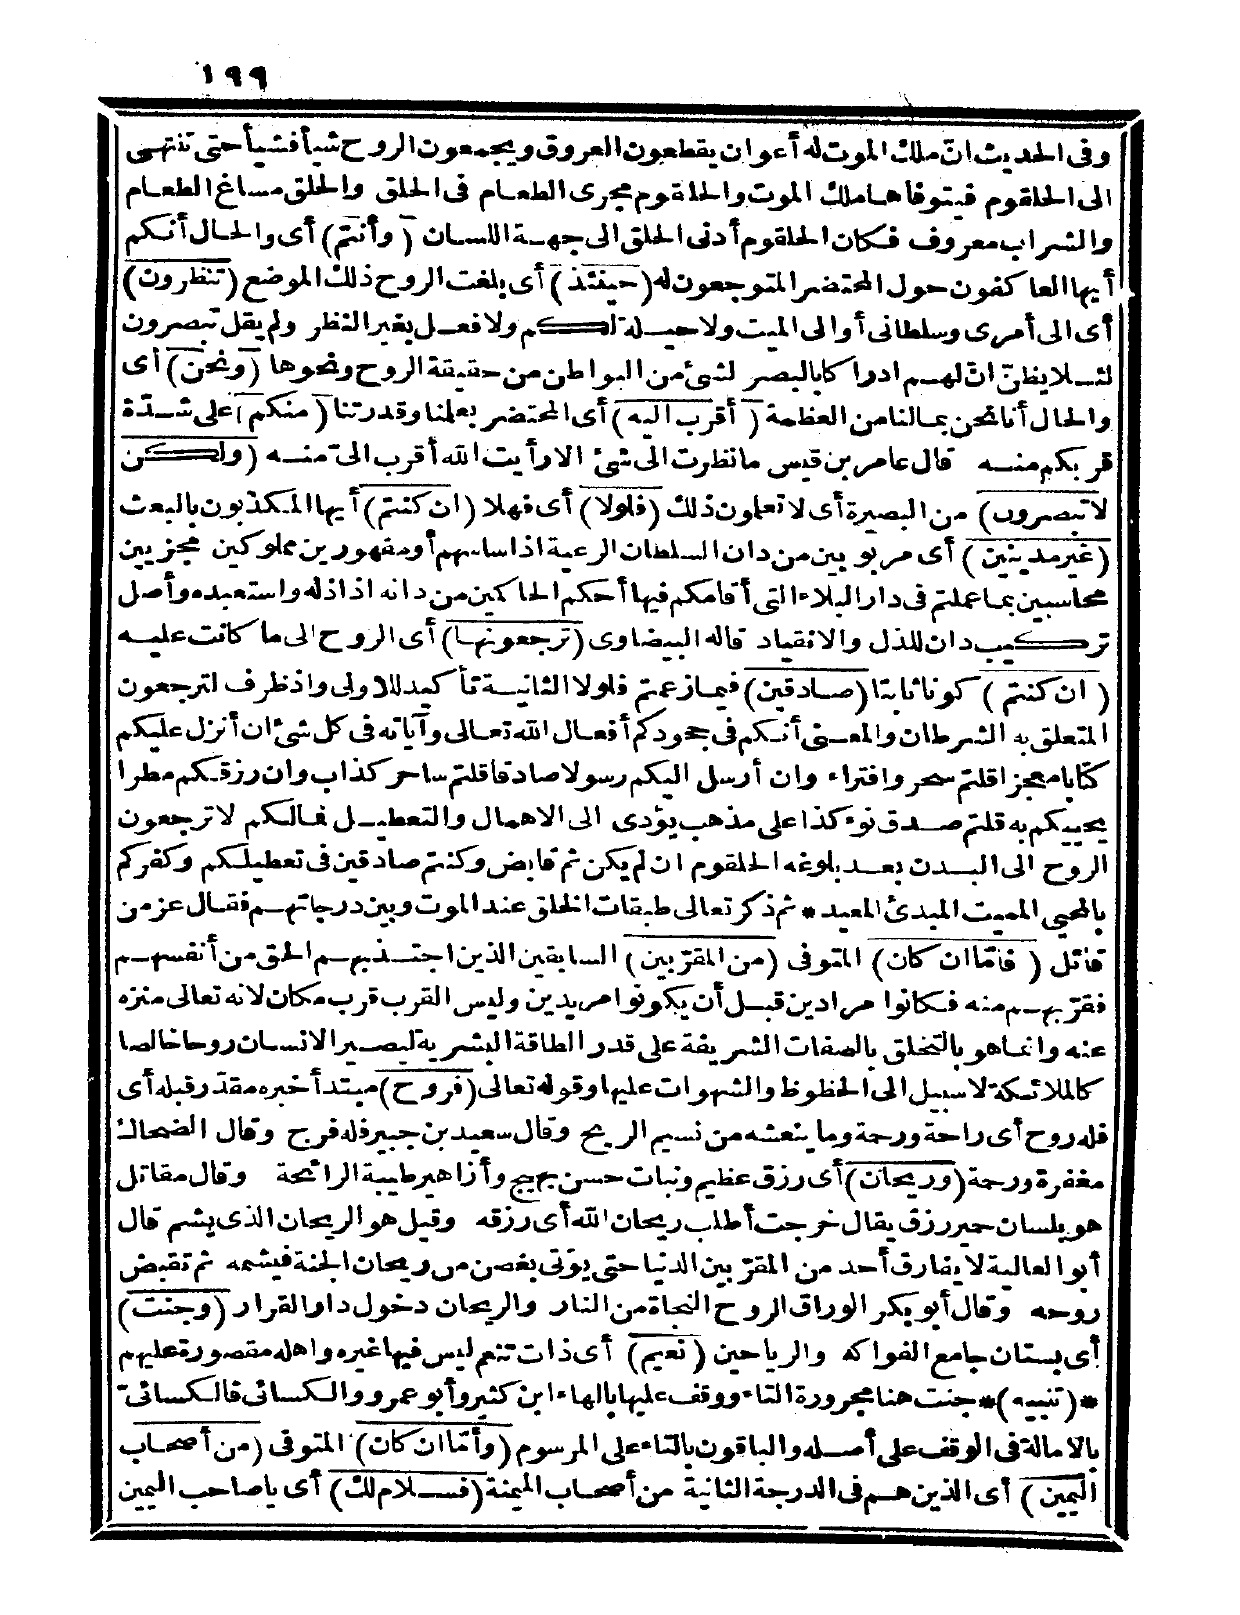 ١٩٩
وفى الحديث انّ ملك الموت له أعوان يقطعون العروق ويجمعون الروح شيأ فشيأ حتى تنتهى
الى الحلقوم فيتوفاها ملك الموت والحلقوم مجرى الطعام فى الحلق والحلق مساغ الطعام
والشراب معروف فكان الحلقوم أدنى الحلق الى جهة اللسان (وأنتم) أى والحال أنكم
أيها العاكفون حول المحتضر المتوجعون له (حينئذ) أى بلغت الروح ذلك الموضع (تنظرون)
أى الى أمرى وسلطانى أو الى الميت ولا حيلة لكم ولا فعل بغير النظر ولم يقل تبصرون
لئلا يظنّ انّ لهم ادراكا بالبصر لشئ من البواطن من حقيقة الروح ونحوها (ونحن) أى
والحال أنا نحن بمالنا من العظمة (أقرب اليه) أى المحتضر بعلمنا وقدرتنا (منكم) على شدّة
قربكم منه قال عامر بن قيس ما نظرت الى شئ الا رأيت الله أقرب الىّ منه (ولكن
لا تبصرون) من البصيرة أى لا تعلمون ذلك (فلولا) أى فهلا (ان كنتم) أيها المكذبون بالبعث
(غير مدينين) أى مربوبين من دان السلطان الرعية اذا ساسهم أو مقهورين مملوكين مجزيين
محاسبين بما عملتم فى دار البلاء التى أقامكم فيها أحكم الحاكمين من دانه اذا ذله واستعبده وأصل
تركيب دان للذل والانقياد قاله البيضاوى (ترجعونها) أى الروح الى ما كانت عليه
(ان كنتم) كونا ثابتا (صادقين) فيما زعمتم فلولا الثانية تأكيد للاولى واذ ظرف لترجعون
المتعلق به الشرطان والمعنى أنكم فى جحودكم أفعال الله تعالى وآياته فى كل شئ ان أنزل عليكم
كتابا معجزا قلتم سحر وافتراء وان أرسل اليكم رسولا صادقا قلتم ساحر كذاب وان رزقكم مطرا
يحييكم به قلتم صدق نوء كذا على مذهب يؤدى الى الاهمال والتعطيل فمالكم لا ترجعون
الروح الى البدن بعد بلوغه الحلقوم ان لم يكن ثم قابض وكنتم صادقين فى تعطيلكم وكفركم
بالمحيى المميت المبدئ المعيد * ثم ذكر تعالى طبقات الخلق عند الموت وبين درجاتهم فقال عز من
قائل (فامّا ان كان) المتوفى (من المقرّبين) السابقين الذين اجتذبهم الحق من أنفسهم
فقرّبهم منه فكانوا مرادين قبل أن يكونوا مريدين وليس القرب قرب مكان لانه تعالى منزه
عنه وانما هو بالتخلق بالصفات الشريفة على قدر الطاقة البشرية ليصير الانسان روحا خالصا
كالملائكة لا سبيل الى الحظوظ والشهوات عليها وقوله تعالى (فروح) مبتدأ خبره مقدّر قبله أى
فله روح أى راحة ورحمة وما ينعشه من نسيم الريح وقال سعيد بن جبير فله فرح وقال الضحاك
مغفرة ورحمة (وريحان) أى رزق عظيم ونبات حسن بهيج وأزاهير طيبة الرائحة وقال مقاتل
هو بلسان حمير رزق يقال خرجت أطلب ريحان الله أى رزقه وقيل هو الريحان الذى يشم قال
أبو العالية لا يفارق أحد من المقرّبين الدنيا حتى يؤتى بغصن من ريحان الجنة فيشمه ثم تقبض
روحه وقال أبو بكر الوراق الروح النجاة من النار والريحان دخول دار القرار (وجنت)
أى بستان جامع الفواكه والرياحين (نعيم) أى ذات تنعم ليس فيها غيره واهله مقصورة عليهم
*(تنبيه)* جنت هنا مجرورة التاء ووقف عليها بالهاء ابن كثير وأبو عمرو والكسائى فالكسائىّ
بالامالة فى الوقف على أصله والباقون بالتاء على المرسوم (وأمّا ان كان) المتوفى (من أصحاب
اليمين) أى الذين هم فى الدرجة الثانية من أصحاب الميمنة (فسلام لك) أى يا صاحب اليمين